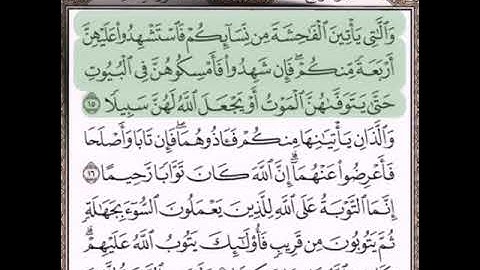 وَٱلَّٰتِى يَأْتِينَ ٱلْفَٰحِشَةَ مِن نِّسَآئِكُمْ فَٱسْتَشْهِدُوا۟ عَلَيْهِنَّ
أَرْبَعَةً مِّنكُمْ ۖ فَإِن شَهِدُوا۟ فَأَمْسِكُوهُنَّ فِى ٱلْبُيُوتِ
حَتَّىٰ يَتَوَفَّىٰهُنَّ ٱلْمَوْتُ أَوْ يَجْعَلَ ٱللَّهُ لَهُنَّ سَبِيلًا ١٥
وَٱلَّذَانِ يَأْتِيَٰنِهَا مِنكُمْ فَـَٔاذُوهُمَا ۖ فَإِن تَابَا وَأَصْلَحَا
فَأَعْرِضُوا۟ عَنْهُمَآ ۗ إِنَّ ٱللَّهَ كَانَ تَوَّابًا رَّحِيمًا ١٦
إِنَّمَا ٱلتَّوْبَةُ عَلَى ٱللَّهِ لِلَّذِينَ يَعْمَلُونَ ٱلسُّوٓءَ بِجَهَٰلَةٍ
ثُمَّ يَتُوبُونَ مِن قَرِيبٍ فَأُو۟لَٰٓئِكَ يَتُوبُ ٱللَّهُ عَلَيْهِمْ ۗ